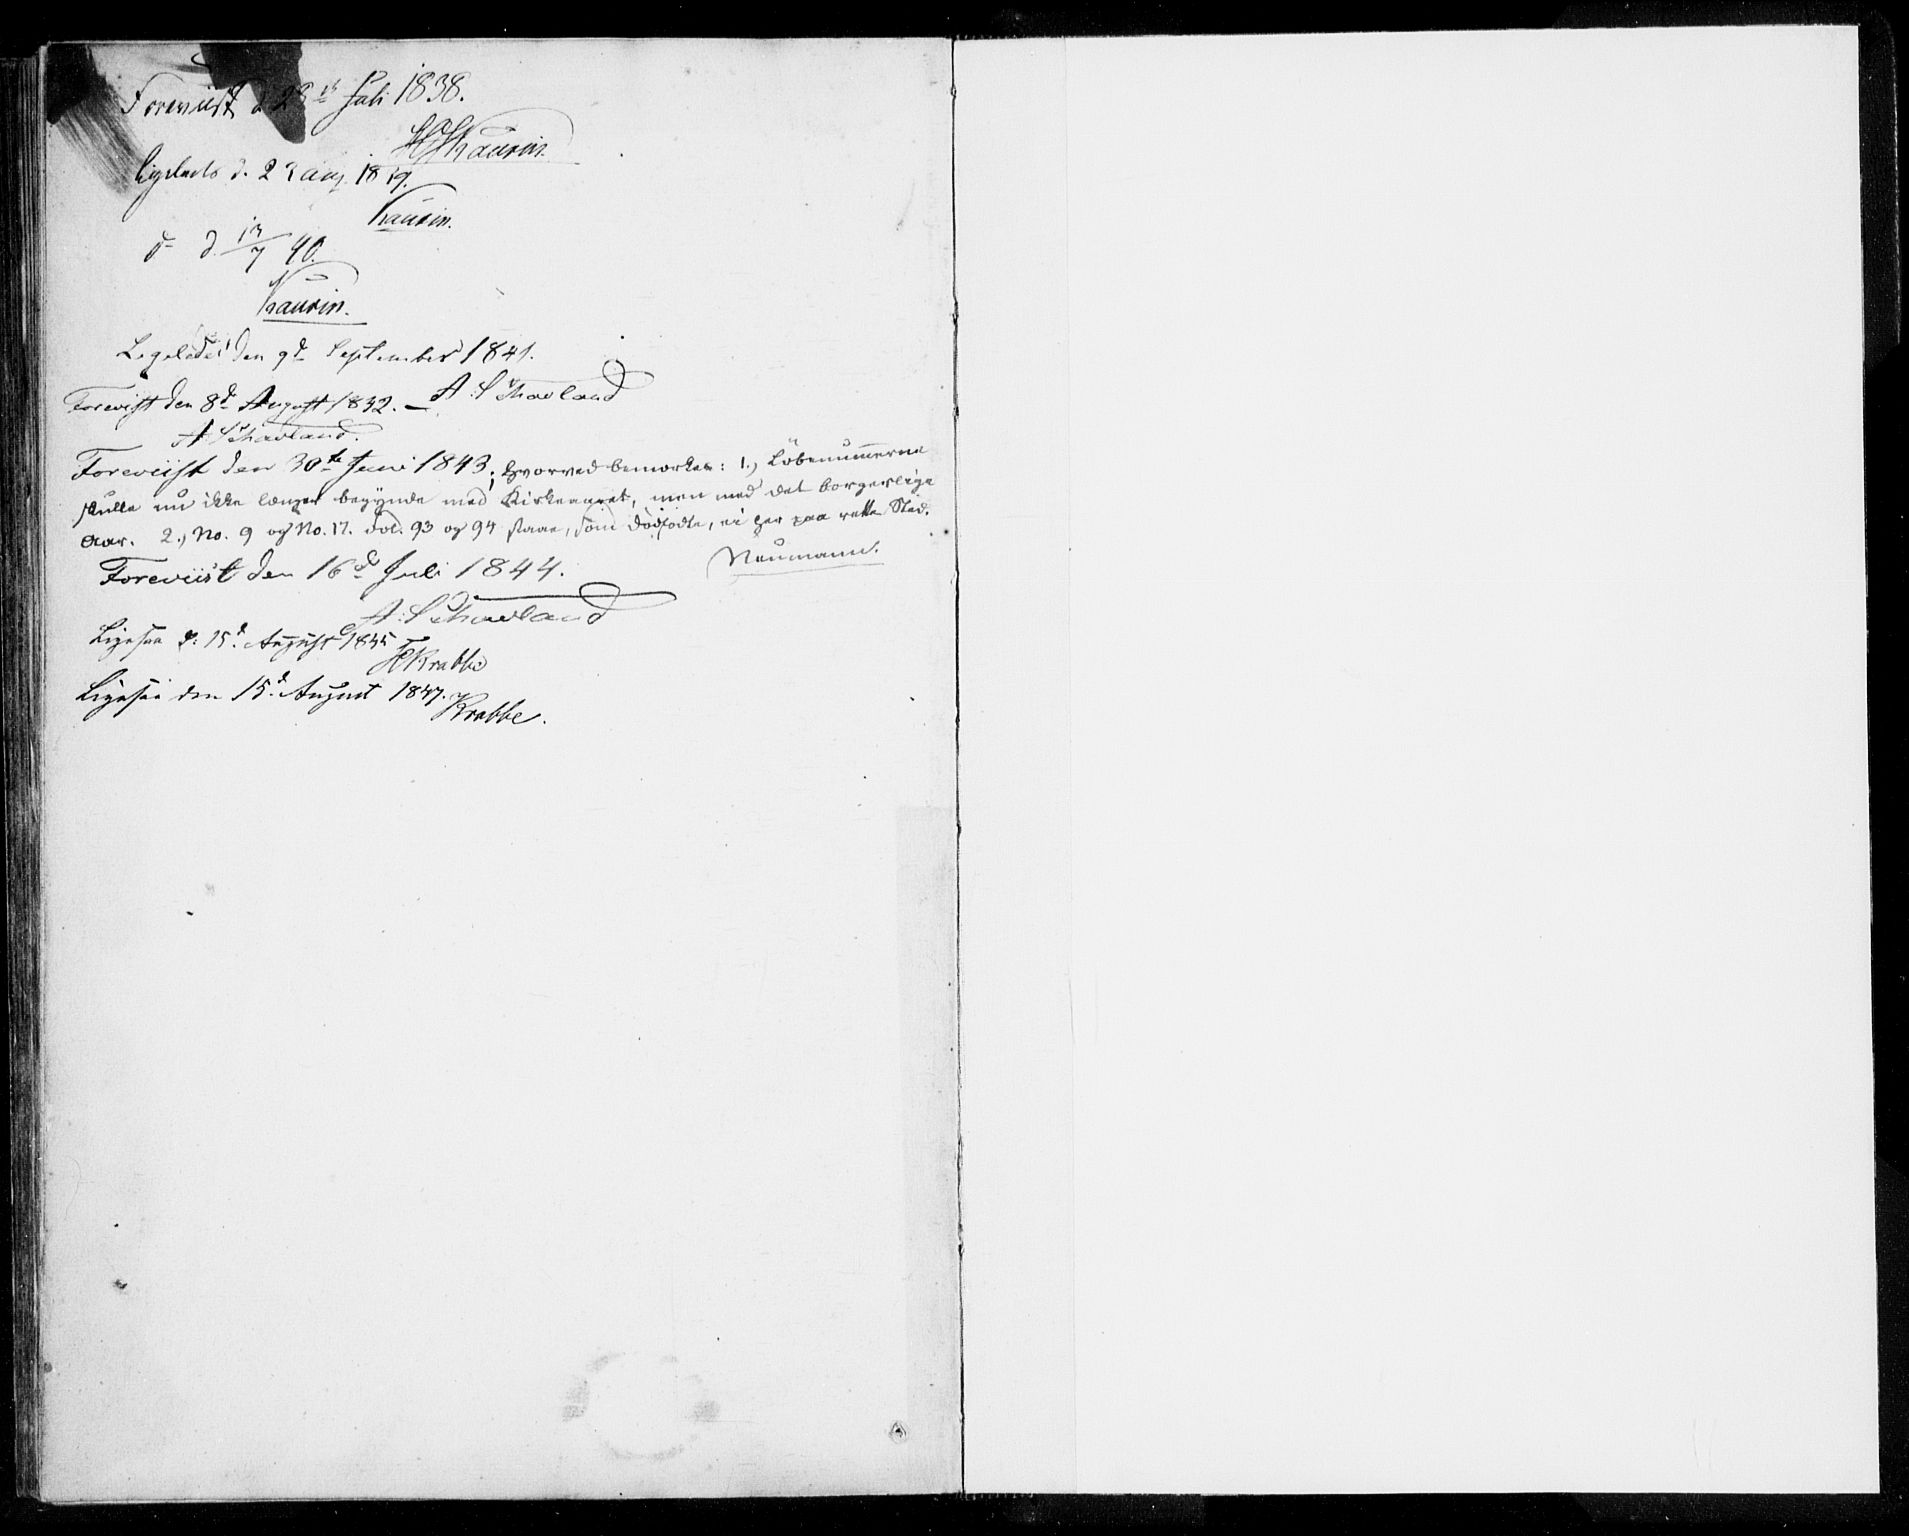 Foreviist d 23de Juli 1838.
Kaurin.
Ligeledes d. 23 Aug. 1839.
Kaurin.
do d. 13/7 40.
Kaurin.
Ligeledes den 9d September 1841.
A. Schavland
Forevist den 8d August 1842. —
A Schavland.
Foreviist den 30te Juni 1843; hvorved bemærkes: 1., Løbenummerne
skulle nu ikke længer begynde med Kirkeaaret, men med det borgerlige
Aar. 2., No. 9 og No. 17. Fol. 93 og 94 staae, som dødfødte, ei her paa rette Sted.
Neumann.
Foreviist den 16d Juli 1844.
A. Schavland
Ligesaa d: 15d August 1845
HKrabbe
Ligesaa den 15d August 1847.
Krabbe.